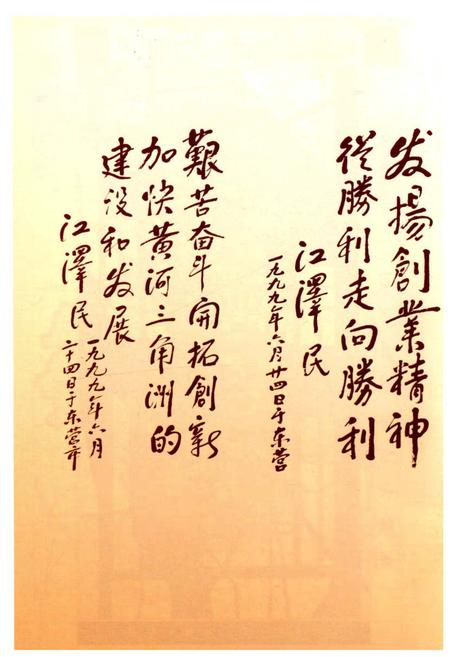 发揚創業精神
從勝利走向勝利
江澤民
一九九九年六月廿四日于东营
艱苦奋斗開拓創新
加快黄河三角洲的
建设和发展
江澤民
一九九九年六月
二十四日于东营市